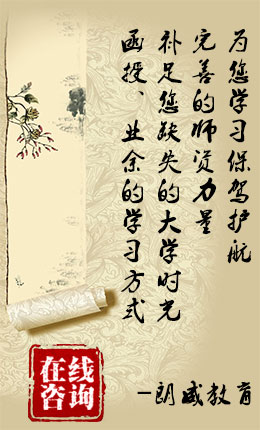 为您学习保驾护航
完善的师资力量
补足您缺失的大学时光
函授、业余的学习方式
-朗威教育
在线
咨询